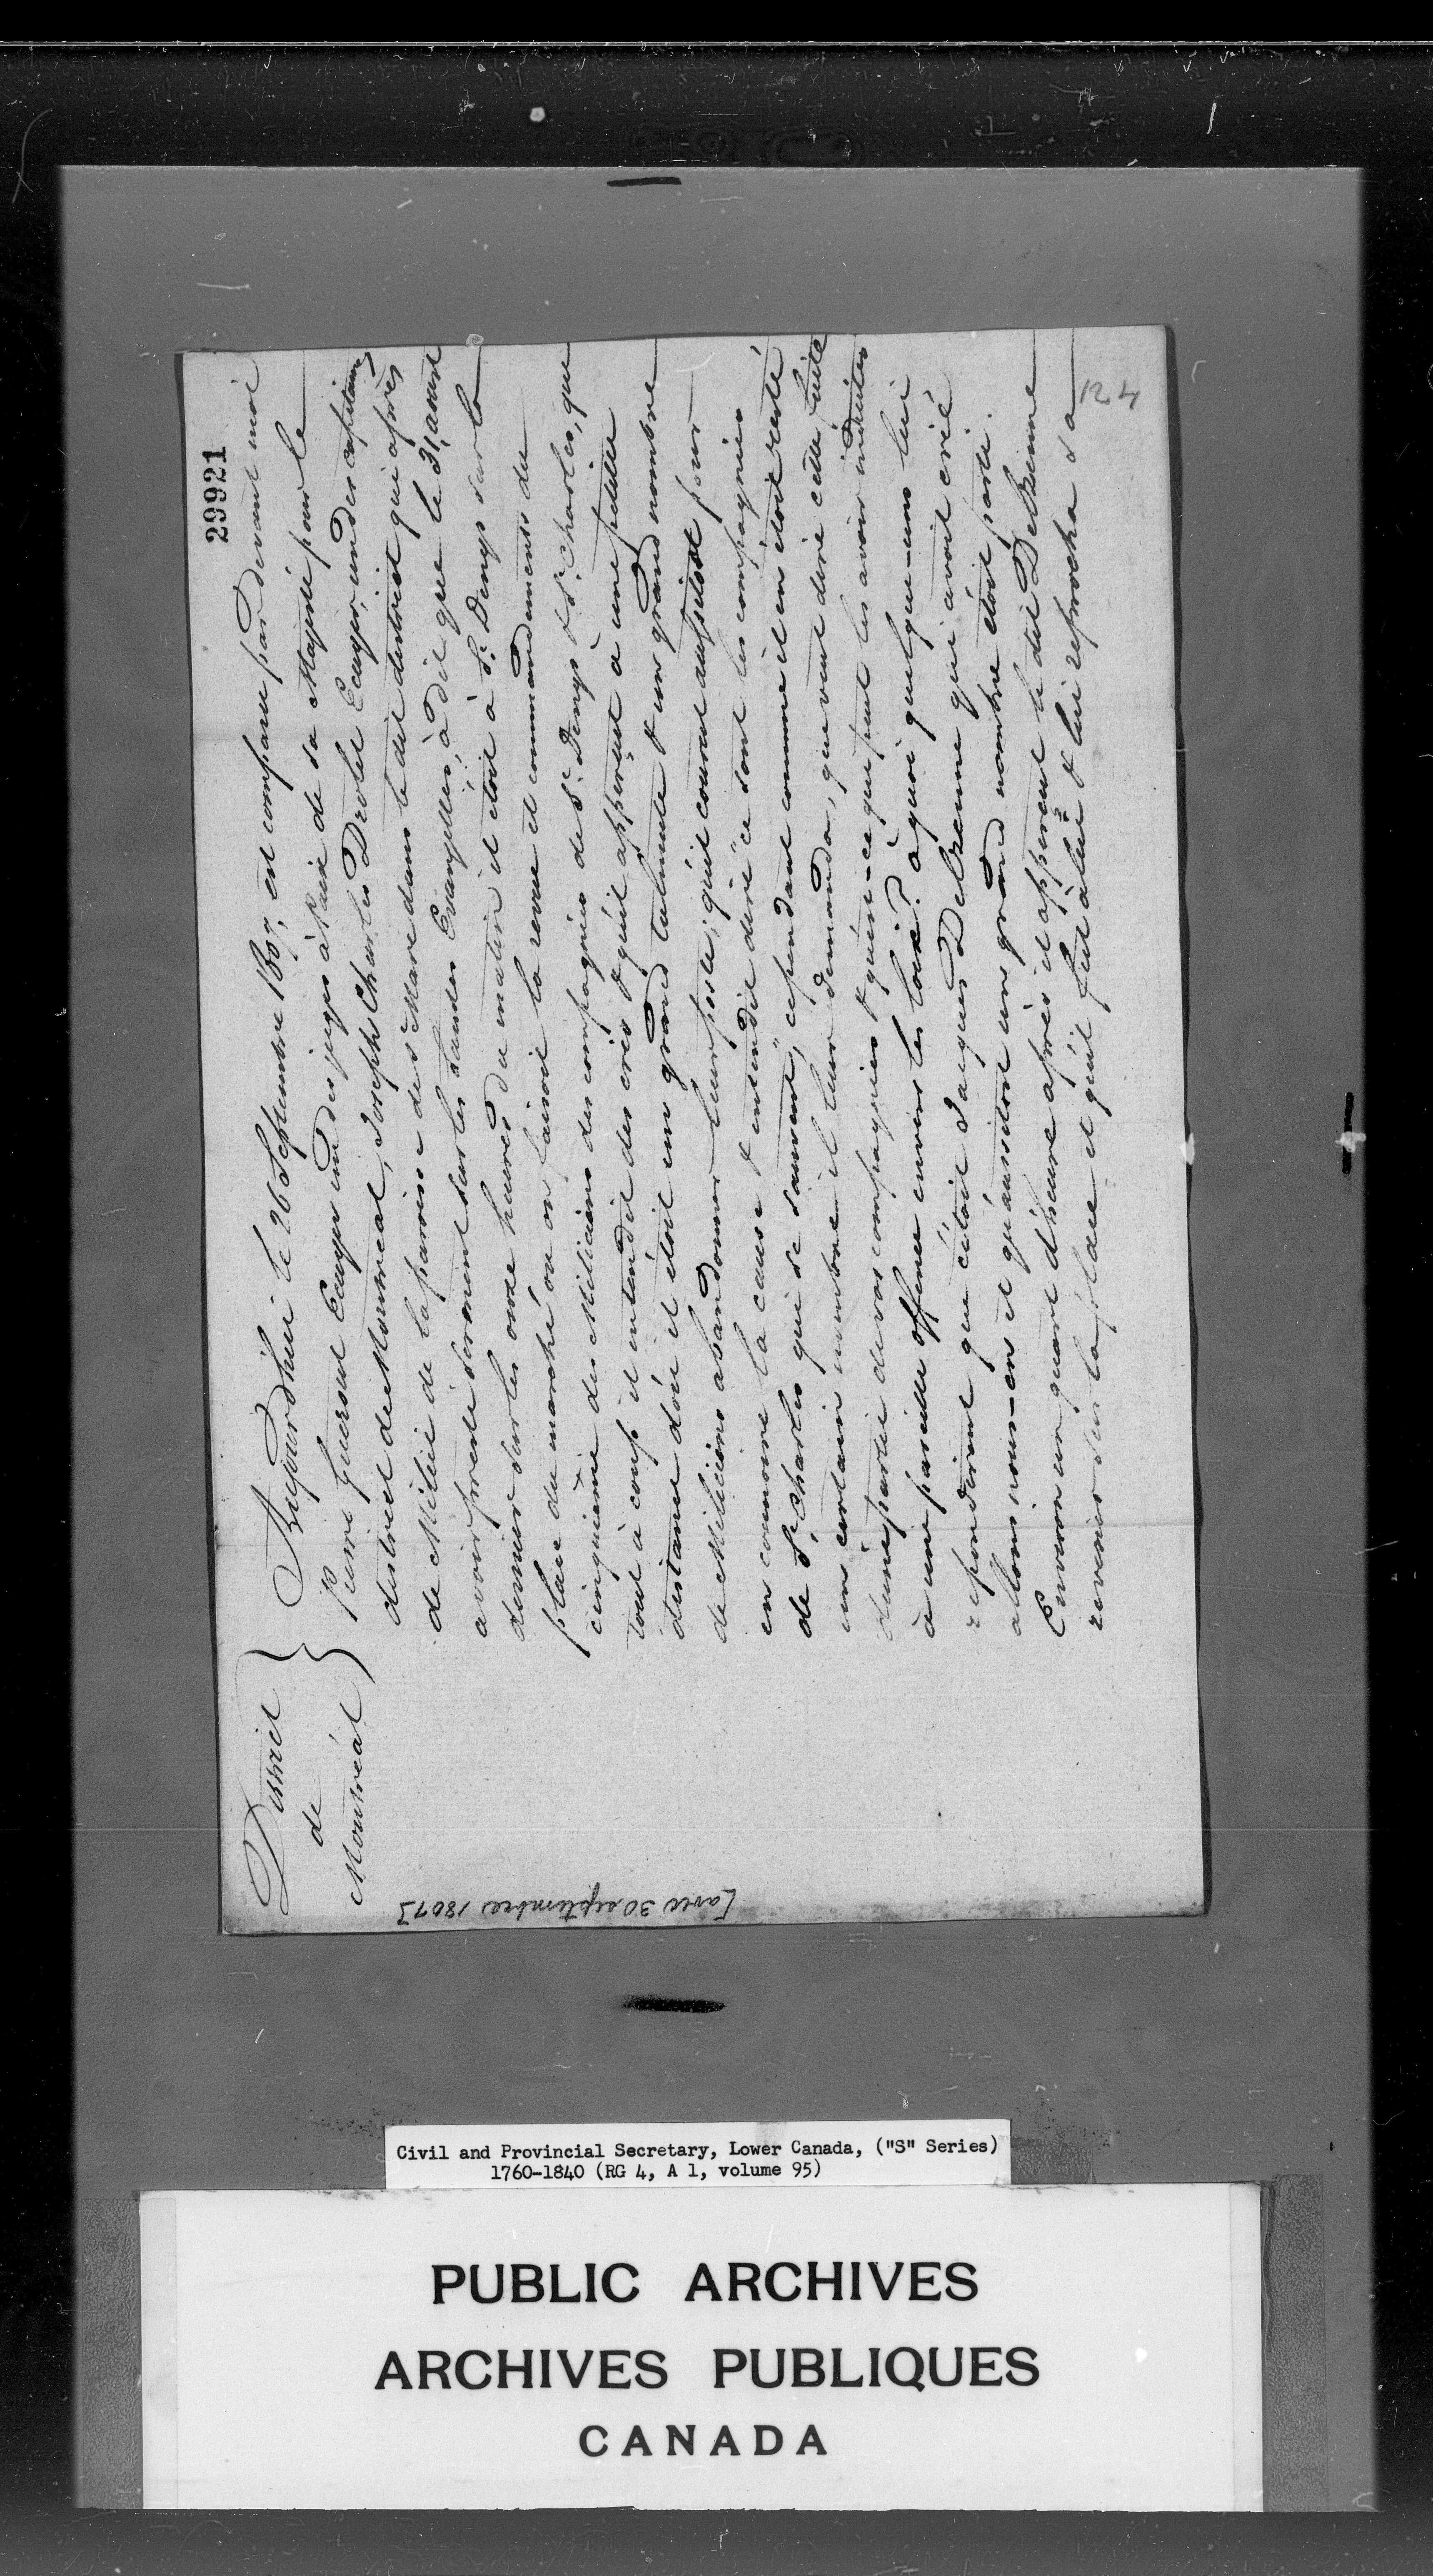 29921
District
de
Montréal
Aujourdhui le 26 Septembre 1807, est comparu pardevant moi
Pierre Guerout Ecuyer un des juges à Paix de sa Majesté pour le
district de Montreal, Joseph Charles Drolet Ecuyer, un des capitaines
de Milice de la paroisse de St Marc dans le dit district qui après
avoir presté serment sur les Saintes Evangilles, à dit que le 31 aoust
dernier sur les onze heures du matin il étoit à St Denys sur la
place du marché ou on faisoit la revue et commandement du
cinquième des Miliciens des compagnies de St Denys & St Charles, que
tout à coup il entendit des cris & qu'il apperçut à une petite
distance d'où il étoit un grand tulmulte & un grand nombre
de Miliciens abandonner leur poste; qu'il courut aussitost pour
en connoitre la cause & entendit dire "ce sont les compagnies
de St Charles qui se sauvent," cependant comme il en étoit resté
un certain nombre il leur demanda, que veut dire cette fuite
d'une partie de vos compagnies & qu'est-ce qui peut les avoir induites
à une pareille offence envers les loix? à quoi quelque-uns lui
repondirent que c'étoit Jacques Deltrenne qui avoit crié
allons nous-en et qu'aussitost un grand nombre étoit parti.
Environ un quart d'heure après il apperçut le dit Deltrenne
revenir sur la place et qu'il fut à lui & lui reprocha sa
124
[avec 30 septembre 1807]
Civil and Provincial Secretary, Lower Canada, ("S" Series)
1760-1840 (RG 4, A 1, volume 95)
PUBLIC ARCHIVES
ARCHIVES PUBLIQUES
CANADA